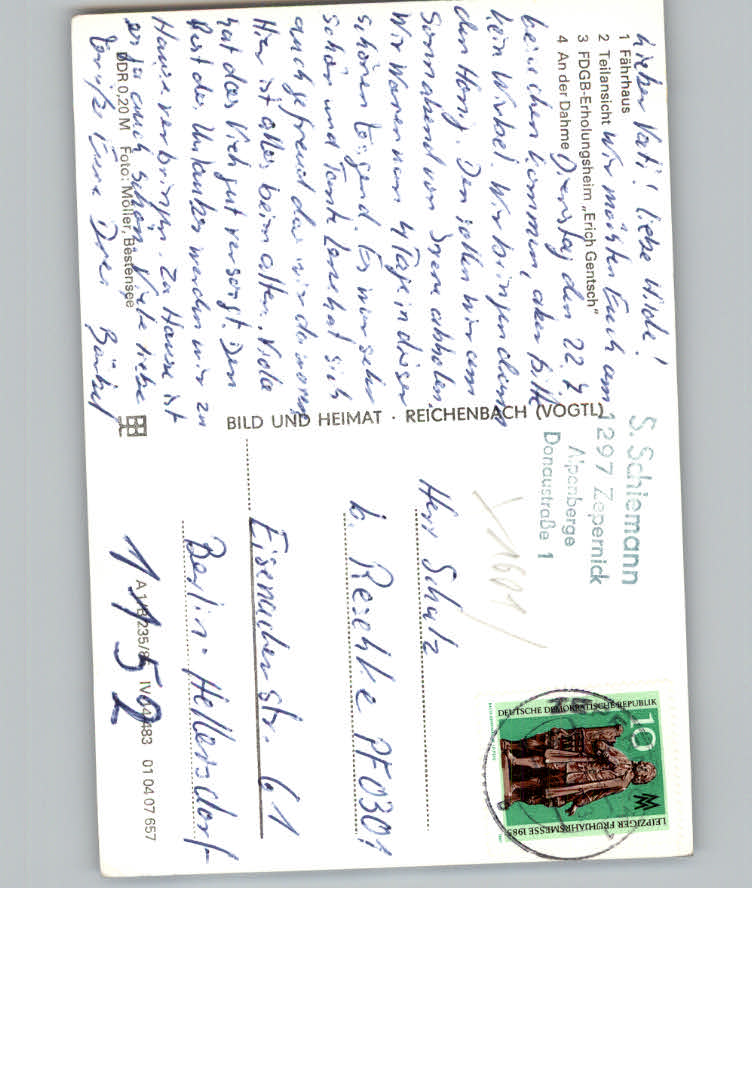 Lieber Vati! Liebe Hilde!
1 Fährhaus
2 Teilansicht
3 FDGB-Erholungsheim „Erich Gentsch"
4 An der Dahme
Wir möchten Euch am
Dienstag den 22. 7.
besuchen kommen, aber bitte
kein Wirbel. Wir bringen dann
den Honig. Den sollen wir am
Sonnabend von Irene abholen.
Wir waren nun 4 Tage in dieser
schönen Gegend. Es war sehr
schön und Tante hat sich
auch gefreut das wir da waren
Hier ist alles beim alten. Viola
hat das Vieh gut versorgt. Den
Rest des Urlaubes werden wir zu
Hause verbringen. Zu Hause ist
es ja auch schön. Viele liebe
Grüße Eure Drei
DDR 0,20 M Foto: Möller, Bestensee
BILD UND HEIMAT · REICHENBACH (VOGTL)
A 1/B 235/8 IV-14-483 01 04 07 657
S. Schiemann
1297 Zepernick
Alpenberge
Donaustraße 1
Herr Schulz
b. Reschke PF 0301
Eisenacher str. 61
Berlin-Hellersdorf
1152
DEUTSCHE DEMOKRATISCHE REPUBLIK
10
LEIPZIGER FRÜHJAHRSMESSE 1985